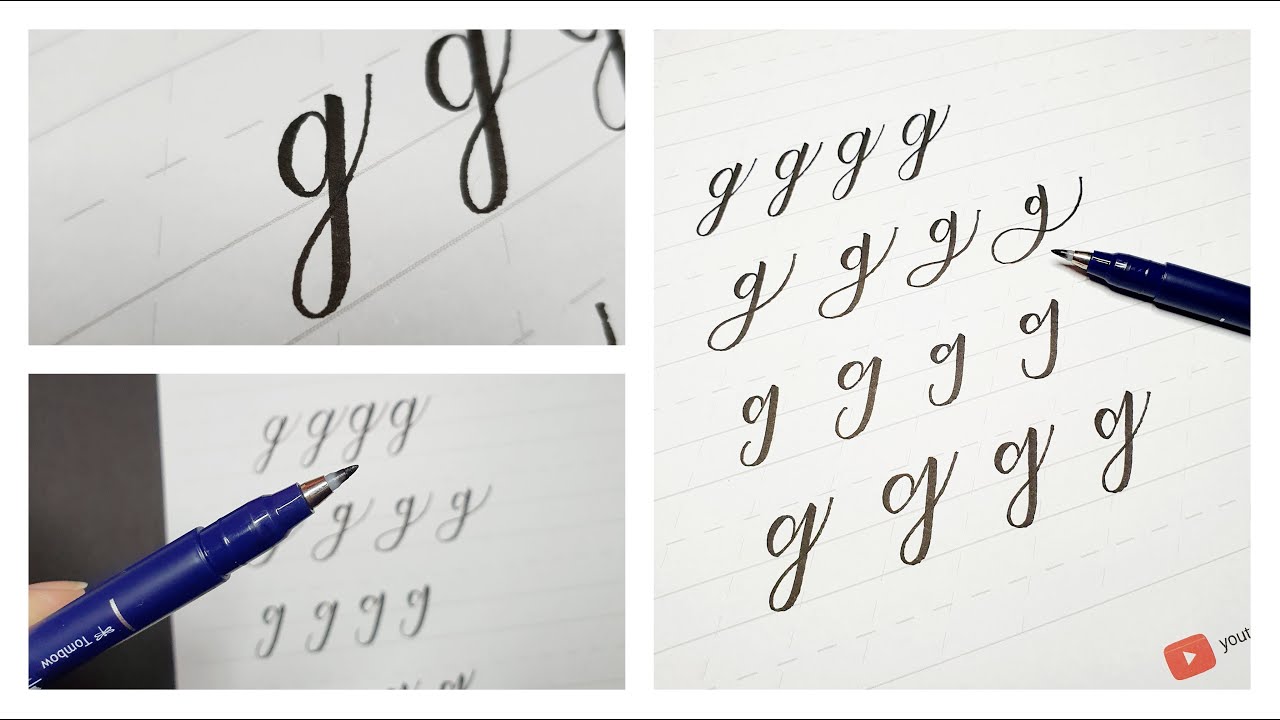 g g
g g g g
g g g g
g g g g
Tombow
g g g g
g g g g
g g g g
g g g g
yout